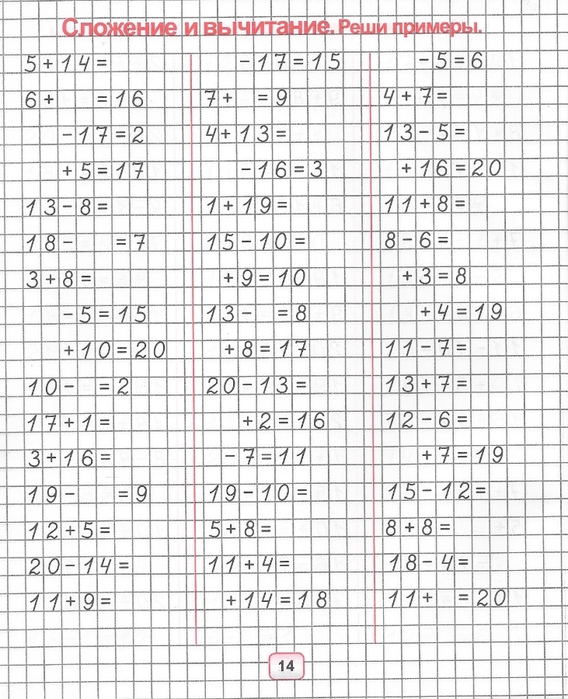 Сложение и вычитание. Реши примеры.
5+14=
6+ =16
-17=2
+5=17
13-8=
18- =7
3+8=
-5=15
+10=20
10- =2
17+1=
3+16=
19- =9
12+5=
20-14=
11+9=
-17=15
7+ =9
4+13=
-16=3
1+19=
15-10=
+9=10
13- =8
+8=17
20-13=
+2=16
-7=11
19-10=
5+8=
11+4=
+14=18
-5=6
4+7=
13-5=
+16=20
11+8=
8-6=
+3=8
+4=19
11-7=
13+7=
12-6=
+7=19
15-12=
8+8=
18-4=
11+ =20
14